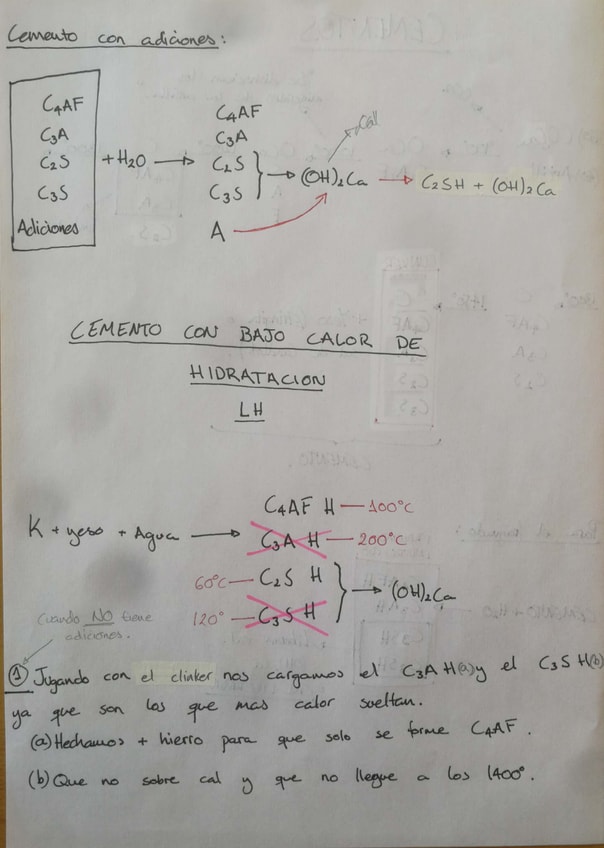 Cemento con adiciones:
C₄AF
C₃A
C₂S
C₃S
Adiciones
+ H₂O →
C₄AF
C₃A
C₂S
C₃S
A
→ (OH)₂Ca → C₂SH + (OH)₂Ca
Cal
CEMENTO CON BAJO CALOR DE
HIDRATACION
LH
K + yeso + Agua →
C₄AF H — 100°C
C₃A H — 200°C
60°C — C₂S H
120° — C₃S H
→ (OH)₂Ca
Cuando NO tiene
adiciones.
① Jugando con el clinker nos cargamos el C₃A H(a) y el C₃S H(b)
ya que son los que mas calor sueltan.
(a) Hechamos + hierro para que solo se forme C₄AF.
(b) Que no sobre cal y que no llegue a los 1400°.